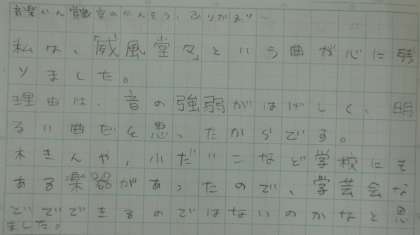 音楽かん賞教室のかんそう、ふりかえり
私は、威風堂々という曲が心に残
りました。
理由は、音の強弱がはげしく、明
るい曲だと思ったからです。
木きんや、小だいこなど学校にも
ある楽器があったので、学芸会な
どでできるのではないのかなと思
ました。